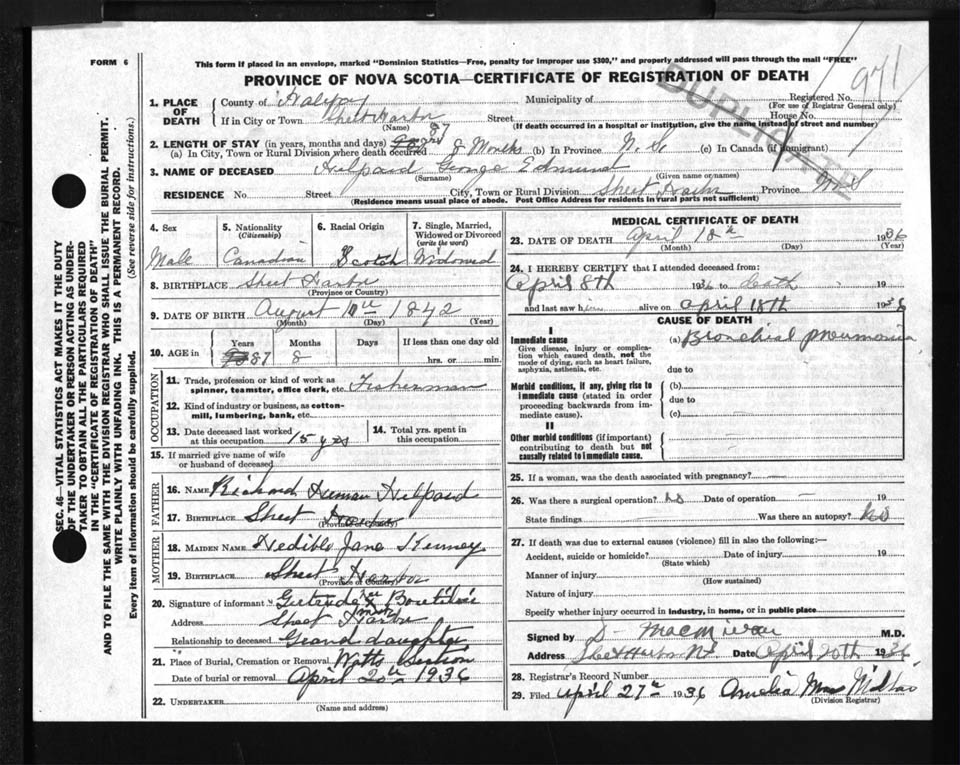 FORM 6
This form if placed in an envelope, marked "Dominion Statistics—Free, penalty for improper use $300," and properly addressed will pass through the mail "FREE"
PROVINCE OF NOVA SCOTIA—CERTIFICATE OF REGISTRATION OF DEATH
DUPLICATE
971
SEC. 46—VITAL STATISTICS ACT MAKES IT THE DUTY
OF THE UNDERTAKER OR PERSON ACTING AS UNDER-
TAKER TO OBTAIN ALL THE PARTICULARS REQUIRED
IN THE "CERTIFICATE OF REGISTRATION OF DEATH"
AND TO FILE THE SAME WITH THE DIVISION REGISTRAR WHO SHALL ISSUE THE BURIAL PERMIT.
WRITE PLAINLY WITH UNFADING INK. THIS IS A PERMANENT RECORD.
Every item of information should be carefully supplied. (See reverse side for instructions.)
1. PLACE OF DEATH
County of Halifax Municipality of Registered No.
(For use of Registrar General only)
If in City or Town Sheet Harbor Street House No.
(Name) (If death occurred in a hospital or institution, give the name instead of street and number)
2. LENGTH OF STAY (in years, months and days)
(a) In City, Town or Rural Division where death occurred 87 8 Months (b) In Province N. S. (c) In Canada (if immigrant)
3. NAME OF DECEASED George Edmund
(Surname) (Given name or names)
RESIDENCE No. Street City, Town or Rural Division Sheet Harbor Province N.S.
(Residence means usual place of abode. Post Office Address for residents in rural parts not sufficient)
4. Sex 5. Nationality (Citizenship) 6. Racial Origin 7. Single, Married, Widowed or Divorced (write the word)
Male Canadian Scotch Widowed
8. BIRTHPLACE Sheet Harbor
(Province or Country)
9. DATE OF BIRTH August 1842
(Month) (Day) (Year)
10. AGE in Years Months Days If less than one day old
87 8 hrs. or min.
OCCUPATION
11. Trade, profession or kind of work as spinner, teamster, office clerk, etc. Fisherman
12. Kind of industry or business, as cotton-mill, lumbering, bank, etc.
13. Date deceased last worked at this occupation 15 yrs 14. Total yrs. spent in this occupation
15. If married give name of wife or husband of deceased
FATHER
16. NAME Richard
17. BIRTHPLACE Sheet Harbor
(Province or Country)
MOTHER
18. MAIDEN NAME Jane Kenney
19. BIRTHPLACE Sheet Harbor
(Province or Country)
20. Signature of informant Gertrude
Address Sheet Harbor
Relationship to deceased Grand daughter
21. Place of Burial, Cremation or Removal Watts Section
Date of burial or removal April 20th 1936
22. UNDERTAKER
(Name and address)
MEDICAL CERTIFICATE OF DEATH
23. DATE OF DEATH April 18th 1936
(Month) (Day) (Year)
24. I HEREBY CERTIFY that I attended deceased from:
April 8th 1936 to death 19
and last saw him alive on April 18th 1936
CAUSE OF DEATH
I
Immediate cause
Give disease, injury or complication which caused death, not the mode of dying, such as heart failure, asphyxia, asthenia, etc.
(a) Bronchial pneumonia
due to
Morbid conditions, if any, giving rise to immediate cause (stated in order proceeding backwards from immediate cause).
(b)
due to
(c)
II
Other morbid conditions (if important) contributing to death but not causally related to immediate cause.
25. If a woman, was the death associated with pregnancy? —
26. Was there a surgical operation? no Date of operation — 19
State findings Was there an autopsy? no
27. If death was due to external causes (violence) fill in also the following:—
Accident, suicide or homicide? Date of injury 19
(State which)
Manner of injury
(How sustained)
Nature of injury
Specify whether injury occurred in industry, in home, or in public place
Signed by M.D.
Address Sheet Harbor N.S. Date April 20th 1936
28. Registrar's Record Number
29. Filed April 27th 1936 Amelia
(Division Registrar)